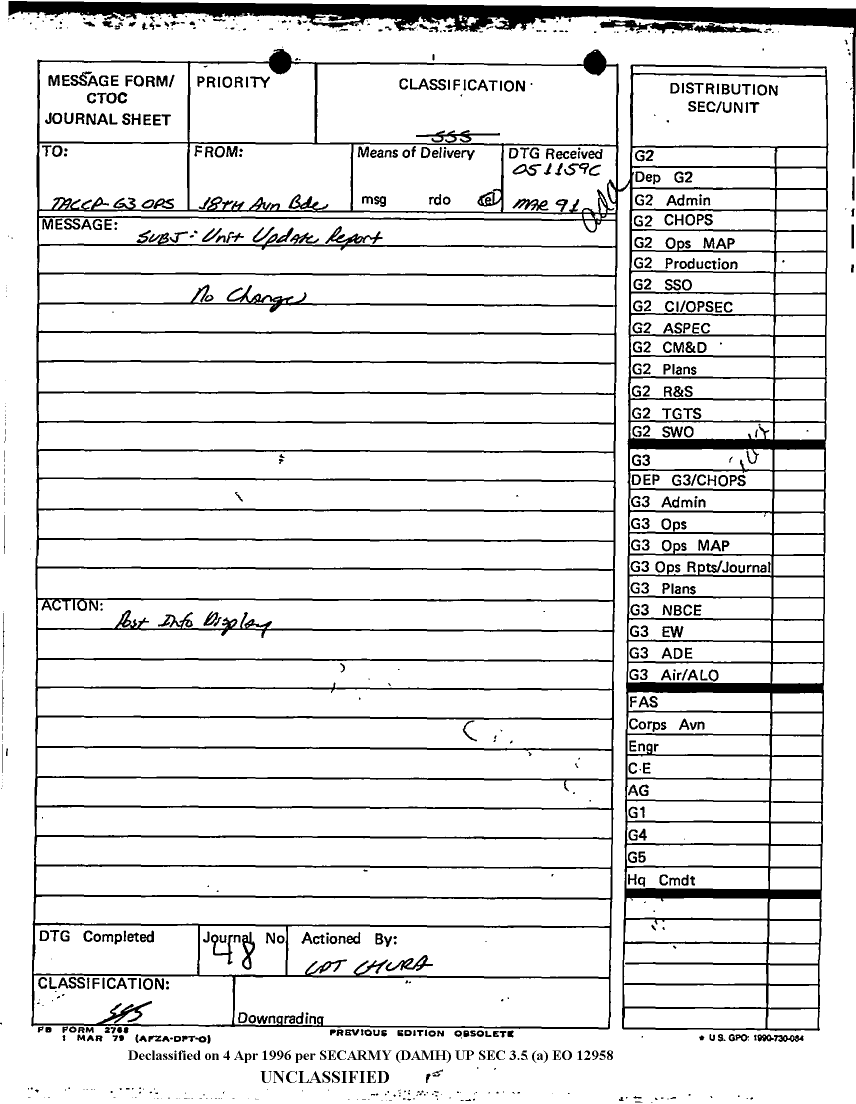 MESSAGE FORM/
CTOC
JOURNAL SHEET
PRIORITY
CLASSIFICATION
SSS
TO:
TACCP-G3 OPS
FROM:
18TH Avn Bde
Means of Delivery
msg rdo tel
DTG Received
051159C
MAR 91
MESSAGE:
SUBJ: Unit Update Report
No Change
ACTION:
Post Info Display
DTG Completed
Journal No
48
Actioned By:
CPT CHURA
CLASSIFICATION:
SSS
Downgrading
FB FORM 2768
1 MAR 79 (AFZA-DPT-O)
PREVIOUS EDITION OBSOLETE
DISTRIBUTION
SEC/UNIT
G2
Dep G2
G2 Admin
G2 CHOPS
G2 Ops MAP
G2 Production
G2 SSO
G2 CI/OPSEC
G2 ASPEC
G2 CM&D
G2 Plans
G2 R&S
G2 TGTS
G2 SWO
G3
DEP G3/CHOPS
G3 Admin
G3 Ops
G3 Ops MAP
G3 Ops Rpts/Journal
G3 Plans
G3 NBCE
G3 EW
G3 ADE
G3 Air/ALO
FAS
Corps Avn
Engr
C-E
AG
G1
G4
G5
Hq Cmdt
* U.S. GPO: 1990-730-084
Declassified on 4 Apr 1996 per SECARMY (DAMH) UP SEC 3.5 (a) EO 12958
UNCLASSIFIED